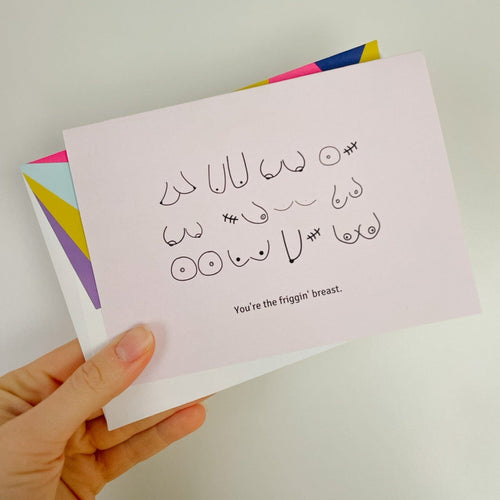 You're the friggin' breast.